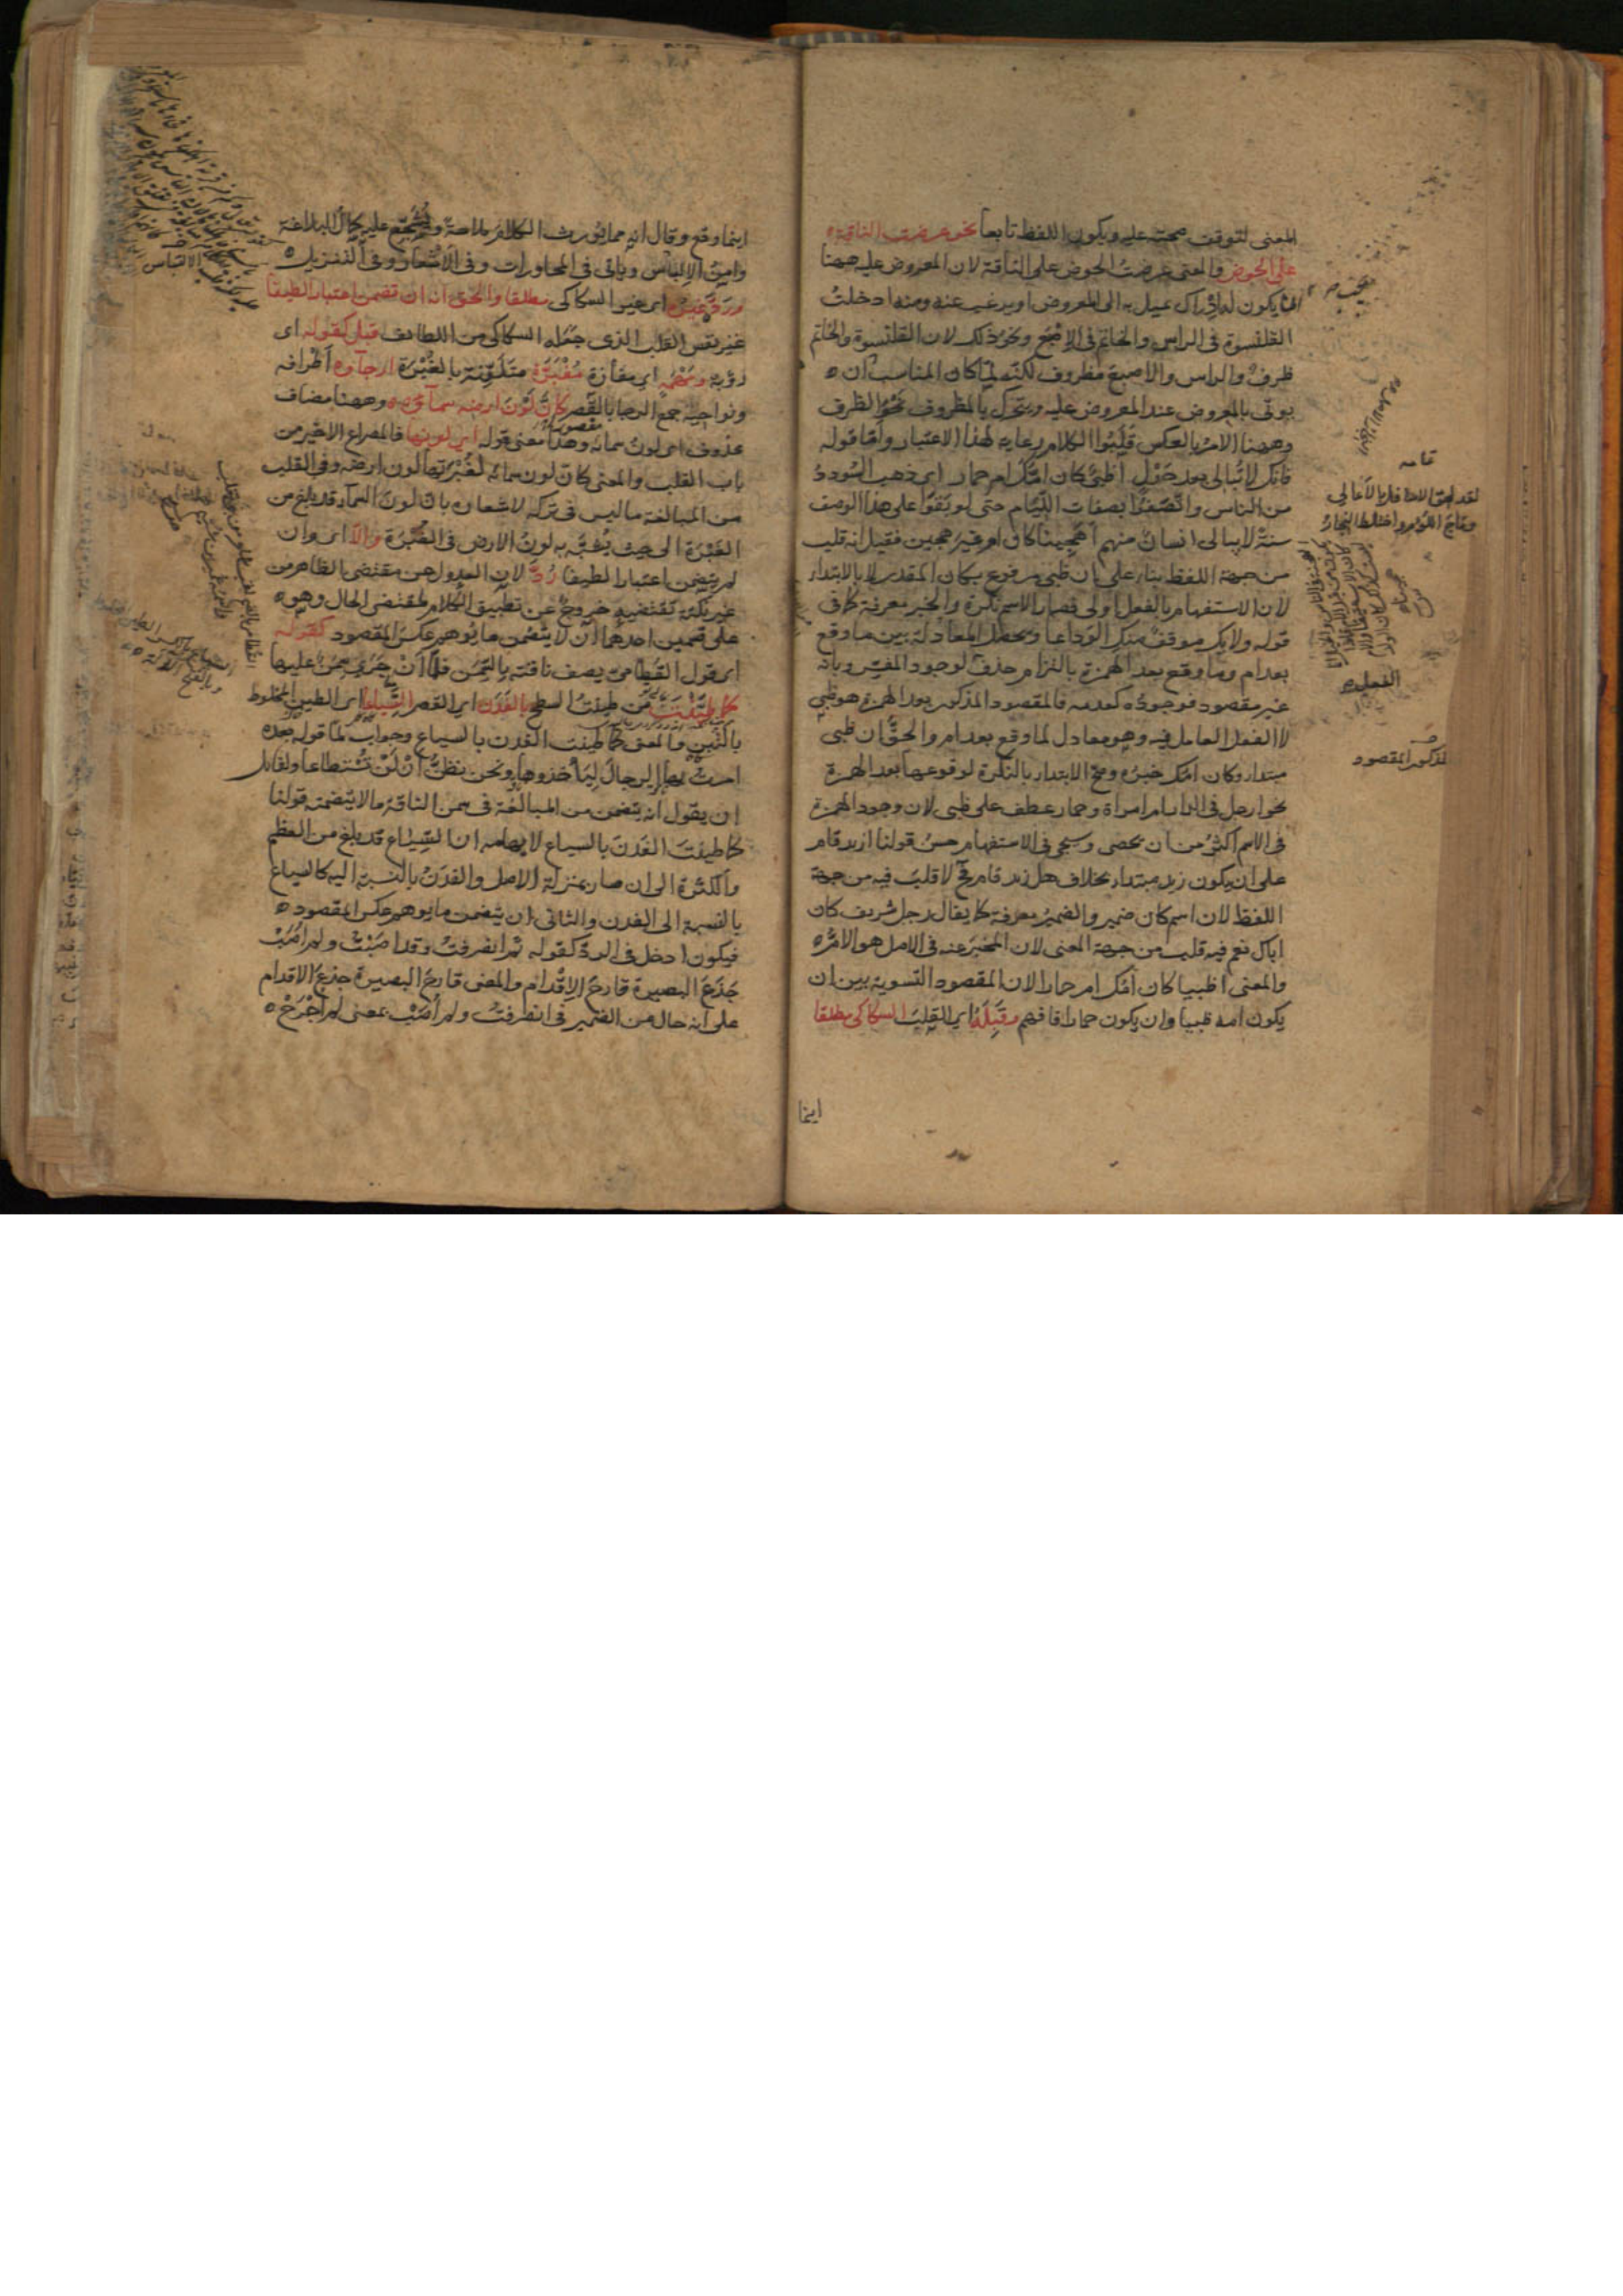 المعنى لتوقف صحته عليه ويكون اللفظ تابعا نحو عرضت الناقة
على الحوض والمعنى عرضت الحوض على الناقة لان المعروض عليه ههنا
ما يكون له ادراك يميل به الى المعروض او يرغب عنه ومنه ادخلت
القلنسوة في الراس والخاتم في الاصبع ونحو ذلك لان القلنسوة والخاتم
ظرف والراس والاصبع مظروف لكنه لما كان المناسب ان
يوتى بالمعروض عند المعروض عليه ويتحرك بالمظروف نحو الظرف
وههنا الامر بالعكس قلبوا الكلام رعاية لهذا الاعتبار واما قوله
فانك لا تبالى بعد حول اظبى كان امك ام حمار اى ذهب السودد
من الناس واتصفوا بصفات اللئام حتى لو بقوا على هذا الوصف
سنة لا يبالى انسان منهم اهجينا كان ام غير هجين فقيل انه قلب
من جهة اللفظ بناء على ان ظبى مرفوع بكان المقدر لا بالابتداء
لان الاستفهام بالفعل اولى فصار الاسم نكرة والخبر معرفة كما في
قوله ولا يك موقف منك الوداعا ويحصل المعادلة بين ما وقع
بعد ام وما وقع بعد الهمزة بالتزام حذف لوجود المفسر وبانه
غير مقصود فوجوده كعدمه فالمقصود المذكور بعد الهمزة هو ظبى
لا الفعل العامل فيه وهو معادل لما وقع بعد ام والحق ان ظبى
مبتدا وكان امك خبره وصح الابتداء بالنكرة لوقوعها بعد الهمزة
نحو ارجل في الدار ام امراة وحمار عطف على ظبى لان وجود الهمزة
في الاسم اكثر من ان يحصى وسيجى في الاستفهام حسن قولنا ازيد قام
على ان يكون زيد مبتدا بخلاف هل زيد قام فح لا قلب فيه من جهة
اللفظ لان اسم كان ضمير والضمير معرفة كما يقال رجل شريف كان
اباك نعم فيه قلب من جهة المعنى لان المخبر عنه في الاصل هو الام
والمعنى اظبيا كان امك ام حمارا لان المقصود التسوية بين ان
يكون امه ظبيا وان يكون حمارا فافهم وقبله اى القلب السكاكى مطلقا
اينما
لقد لحق الاسافل بالاعالى
وماج اللوم واختلط النجار
المذكور المقصود
اينما وقع وقال انه مما يورث الكلام ملاحة ويشجع عليه كمال البلاغة
وامن الالباس وياتى في المحاورات وفي الاشعار وفي التنزيل
ورد غيره اى غير السكاكى مطلقا والحق انه ان تضمن اعتبارا لطيفا
غير نفس القلب الذى جعله السكاكى من اللطائف قبل كقوله اى
رؤبة ومهمه اى مفازة مغبرة متلونة بالغبرة ارجاوه اطرافه
ونواحيه جمع الرجا بالقصر كان لون ارضه سماوه وههنا مضاف
محذوف اى لون سمائه وهذا معنى قوله اى لونها فالمصراع الاخير من
باب القلب والمعنى كان لون سمائه لغبرتها لون ارضه وفي القلب
من المبالغة ما ليس في تركه لاشعاره بان لون السماء قد بلغ من
الغبرة الى حيث يشبه به لون الارض في الغبرة والا اى وان
لم يتضمن اعتبارا لطيفا رد لان العدول عن مقتضى الظاهر من
غير نكتة تقتضيه خروج عن تطبيق الكلام لمقتضى الحال وهو
على قسمين احدهما ان لا يتضمن ما يوهم عكس المقصود كقوله
اى قول القطامى يصف ناقته بالسمن فلما ان جرى سمن عليها
كما طينت من طينت السطح بالفدن اى القصر السياعا اى الطين المخلوط
بالتبن والمعنى كما طينت الفدن بالسياع وجواب لما قوله بعده
امرت بها الرجال لياخذوها ونحن نظن ان لن تستطاعا ولقائل
ان يقول انه يتضمن من المبالغة في سمن الناقة ما لا يتضمنه قولنا
كما طينت الفدن بالسياع لايهامه ان السياع قد بلغ من العظم
والكثرة الى ان صار بمنزلة الاصل والفدن بالنسبة اليه كالسياع
بالنسبة الى الفدن والثانى ان يتضمن ما يوهم عكس المقصود
فيكون ادخل في الرد كقوله ثم انصرفت وقد اصبت ولم اصب
جذع البصيرة قارح الاقدام والمعنى قارح البصيرة جذع الاقدام
على انه حال من الضمير في انصرفت ولم اصب بمعنى لم اجرح